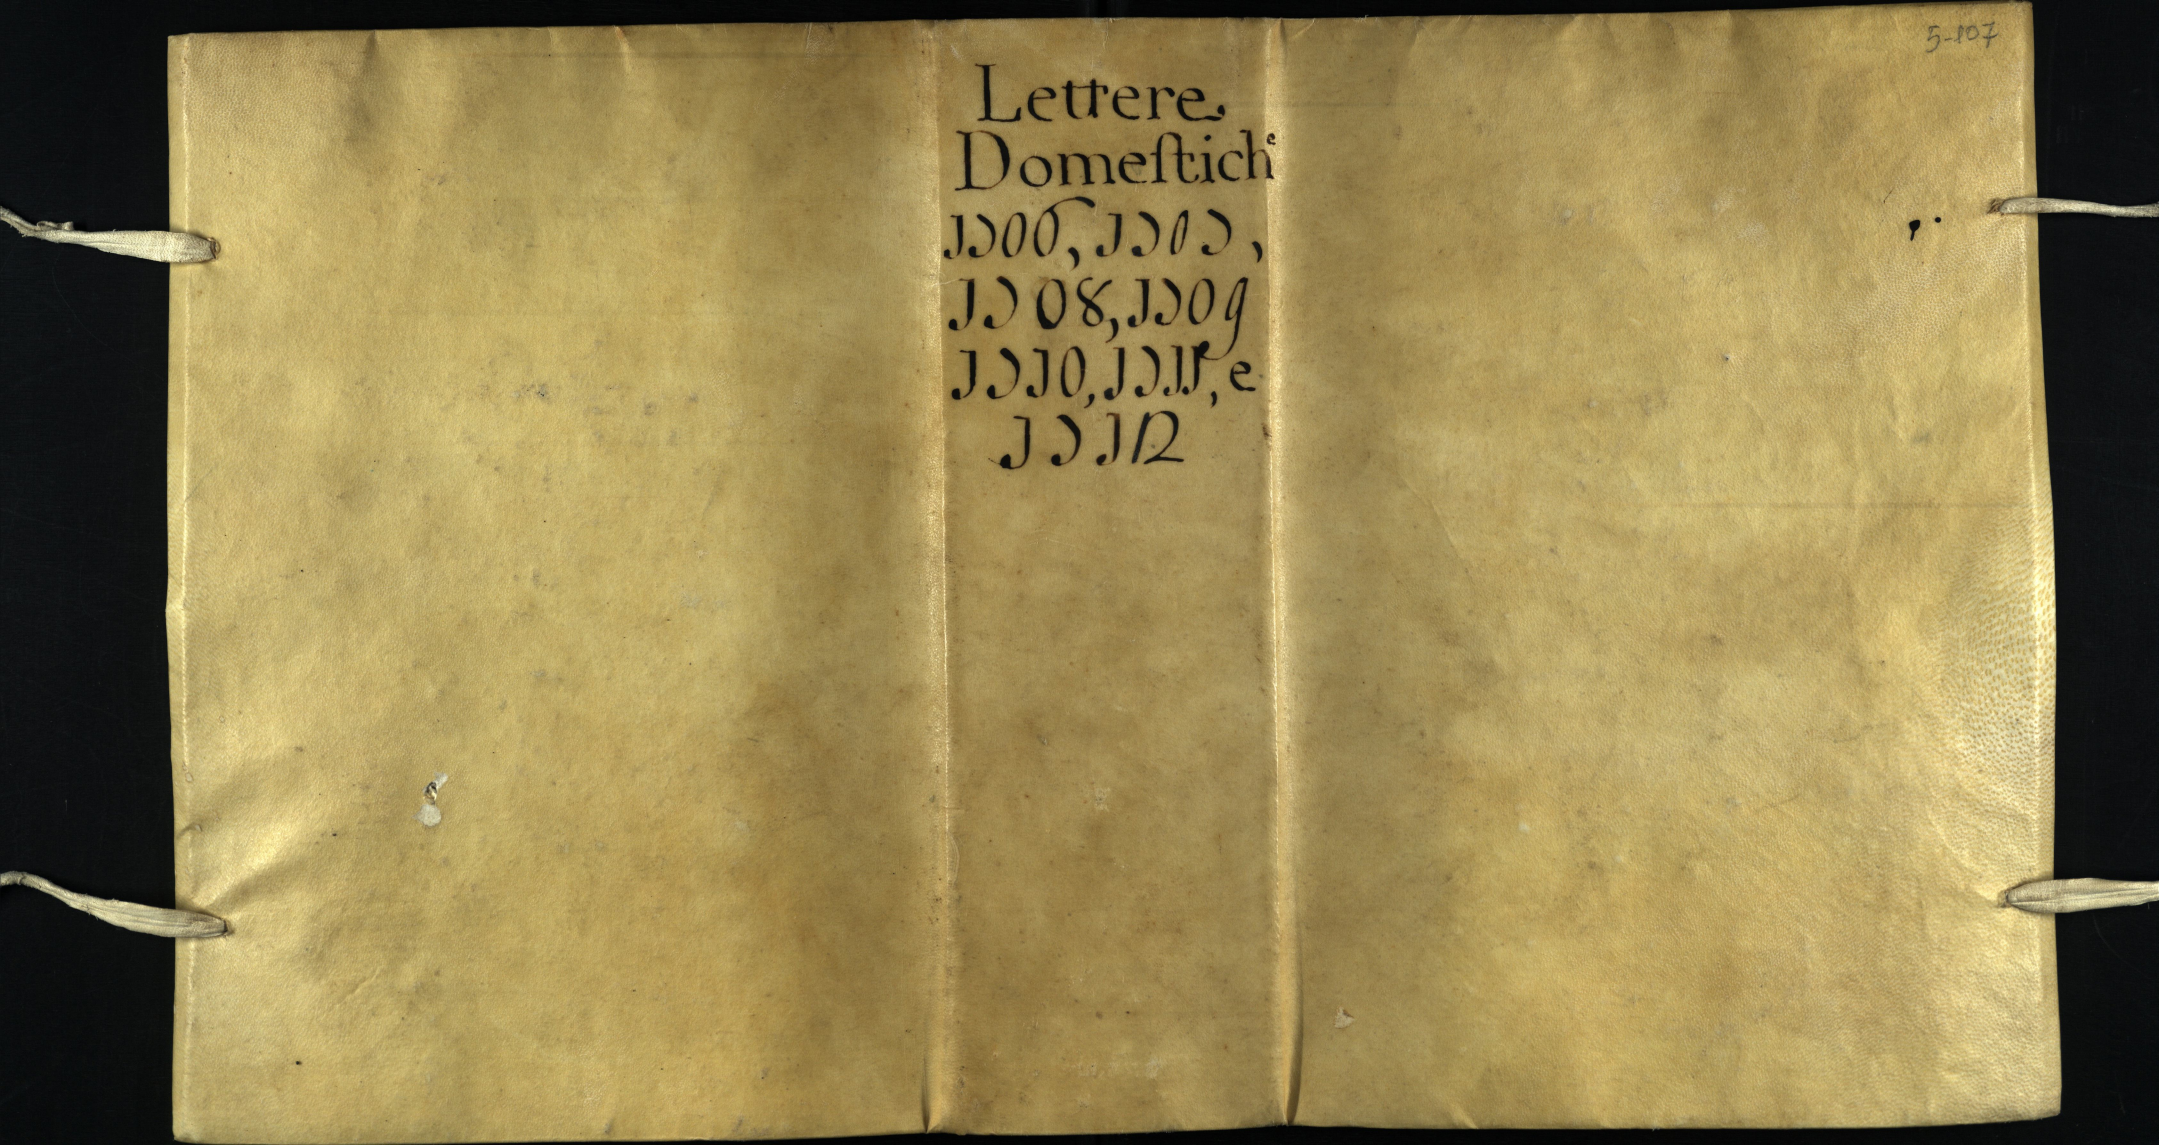 5-107
Lettere
Domeſtiche
1706, 1707,
1708, 1709
1710, 1711, e
1712